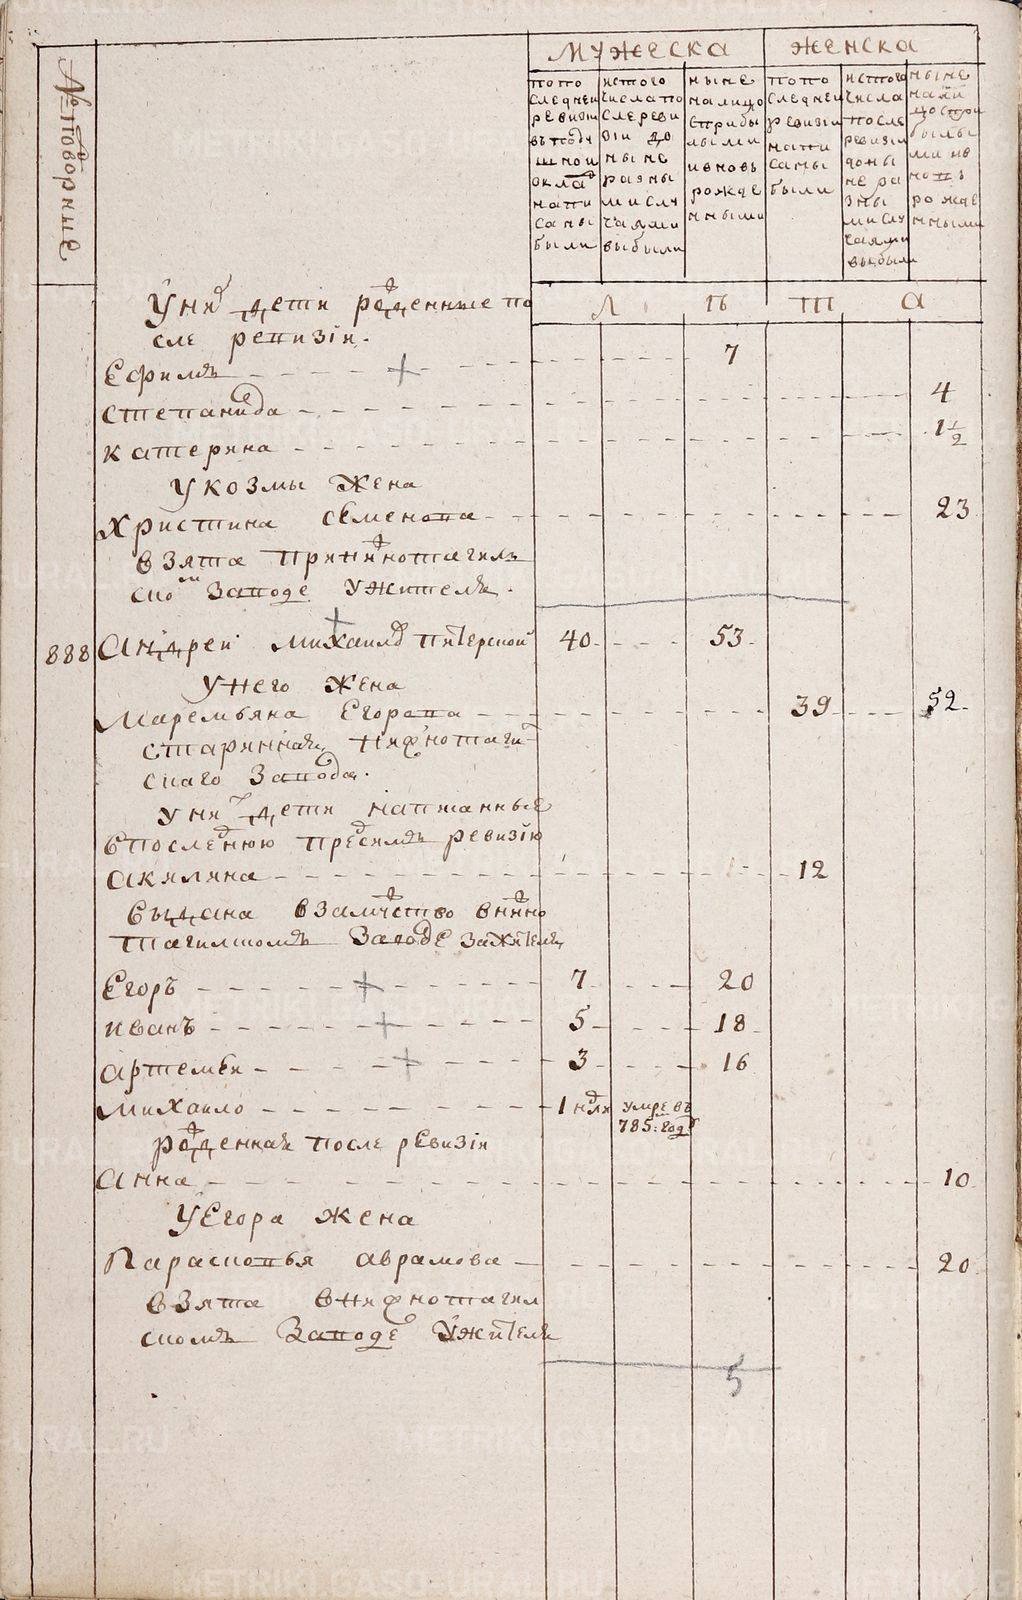 № подворные
мужеска
женска
по по
следней
ревизии
в поду
шной
окла д
напи
саны
были
ис того
числа по
сле реви
зіи до
ныне
разны
ми слу
чаями
выбыли
ныне
налицо
с прибы
лыми
и вновь
рожде
нными
по по
следней
ревизіи
напи
саны
были
ис того
числа
после
ревизіи
доны
не ра
зны
ми слу
чаями
выбыли
ныне
нали
цо с при
былы
ми и в
новь
рожде
нными
лѣта
У них дети рожденные по
сле ревизіи.
Ефимъ 7
Степанида 4
Катерина 1 1/2
У Козмы жена
Христина Семенова 23
взята при нижнотагиль
ском заводе у жителя.
888 Андреи Михаилов Питерской 40 53
У него жена
Маремьяна Егорова 39 52
старинная нижнотаги
скаго завода.
У них дети написанные
в последнюю пред симъ ревизію
Акилина 12
выдана в замужество в нижно
тагилском заводе за жителя
Егоръ 7 20
Иванъ 5 18
Артемьи 3 16
Михаило 1 нед умре въ
785: году
рожденная после ревизіи
Анна 10
У Егора жена
Парасковья Аврамова 20
взята в нижнотагил
скомъ заводе у жителя
5
METRIKI.GASO-URAL.RU